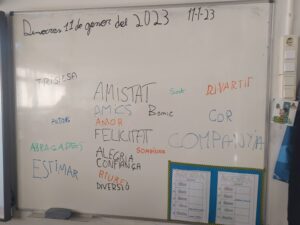 Dimecres 11 de gener del 2023
11-1-23
TRISTESA
AMISTAT
DIVARTIT
AMICS
COR
AMOR
FELICITAT
COMPANYIA
ABRAÇADES
ALEGRIA
SOMRIURE
CONFIANÇA
ESTIMAR
RIURE
DIVERSIÓ